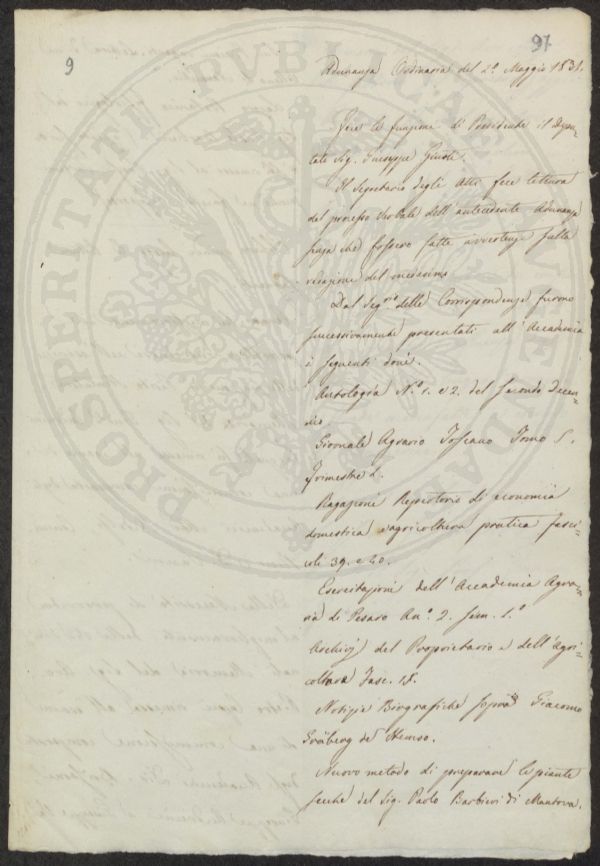 9
97
Adunanza Ordinaria del 2. Maggio 1831.
Fece le funzione di Presidente il Depu=
tato Sig. Giuseppe Giusti.
Il Segretario degli Atti fece lettura
del processo Verbale dell'antecedente Adunanza
senza che fossero fatte avvertenze sulla
redazione del medesimo
Dal Seg.rio delle Corrispondenze furono
successivamente presentati all'Accademia
i seguenti doni.
Antologia N.o 1. e 2. del secondo Decen=
nio
Giornale Agrario Toscano Tomo 5.
Trimestre 1.
Ragazzoni Repertorio di economia
domestica e agricoltura pratica fasci=
coli 39. e 40.
Esercitazioni dell'Accademia Agra=
ria di Pesaro An.o 2. Sem. 1.o
Archivj del Proprietario e dell'Agri=
coltore Fasc. 18.
Notizie Biografiche sopra Giacomo
Gråberg de Hemso.
Nuovo metodo di preparare le piante
secche del Sig. Paolo Barbieri di Mantova.
PROSPERITATI PVBLICAE AVGENDAE